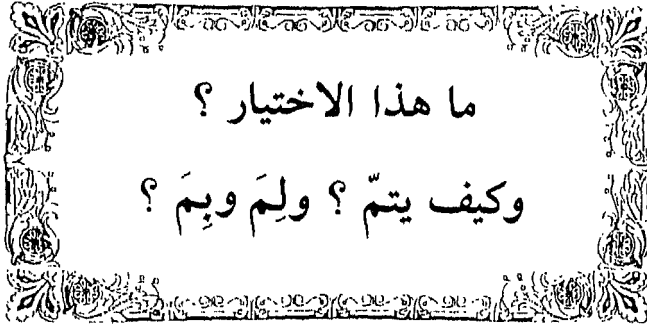 ما هذا الاختيار ؟
وكيف يتمّ ؟ ولِمَ وبِمَ ؟